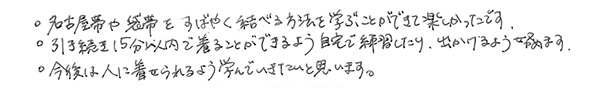 ○ 名古屋帯や袋帯をすばやく結べる方法を学ぶことができて楽しかったです.
○ 引き続き15分以内で着ることができるよう自宅で練習したり、出かけるよう努めます.
○ 今後は人に着せられるよう学んでいきたいと思います。